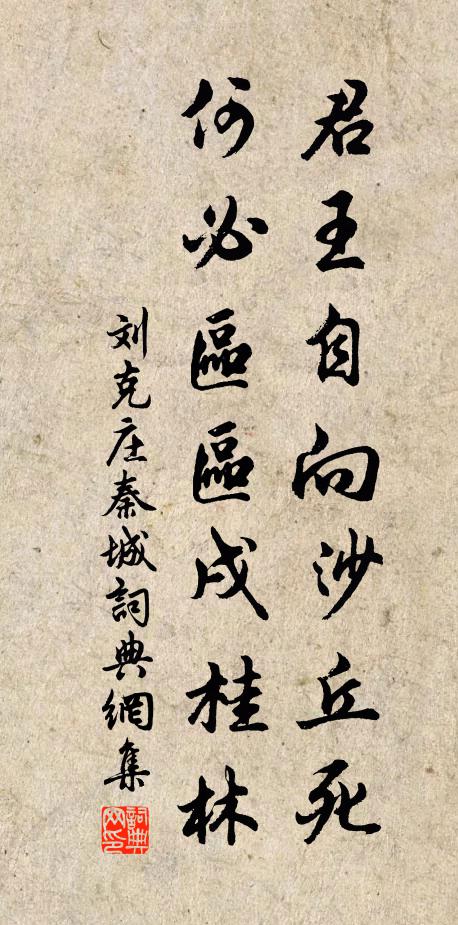 君王自向沙丘死
何必區區戍桂林
刘克庄秦城詞典網集
詞典网印